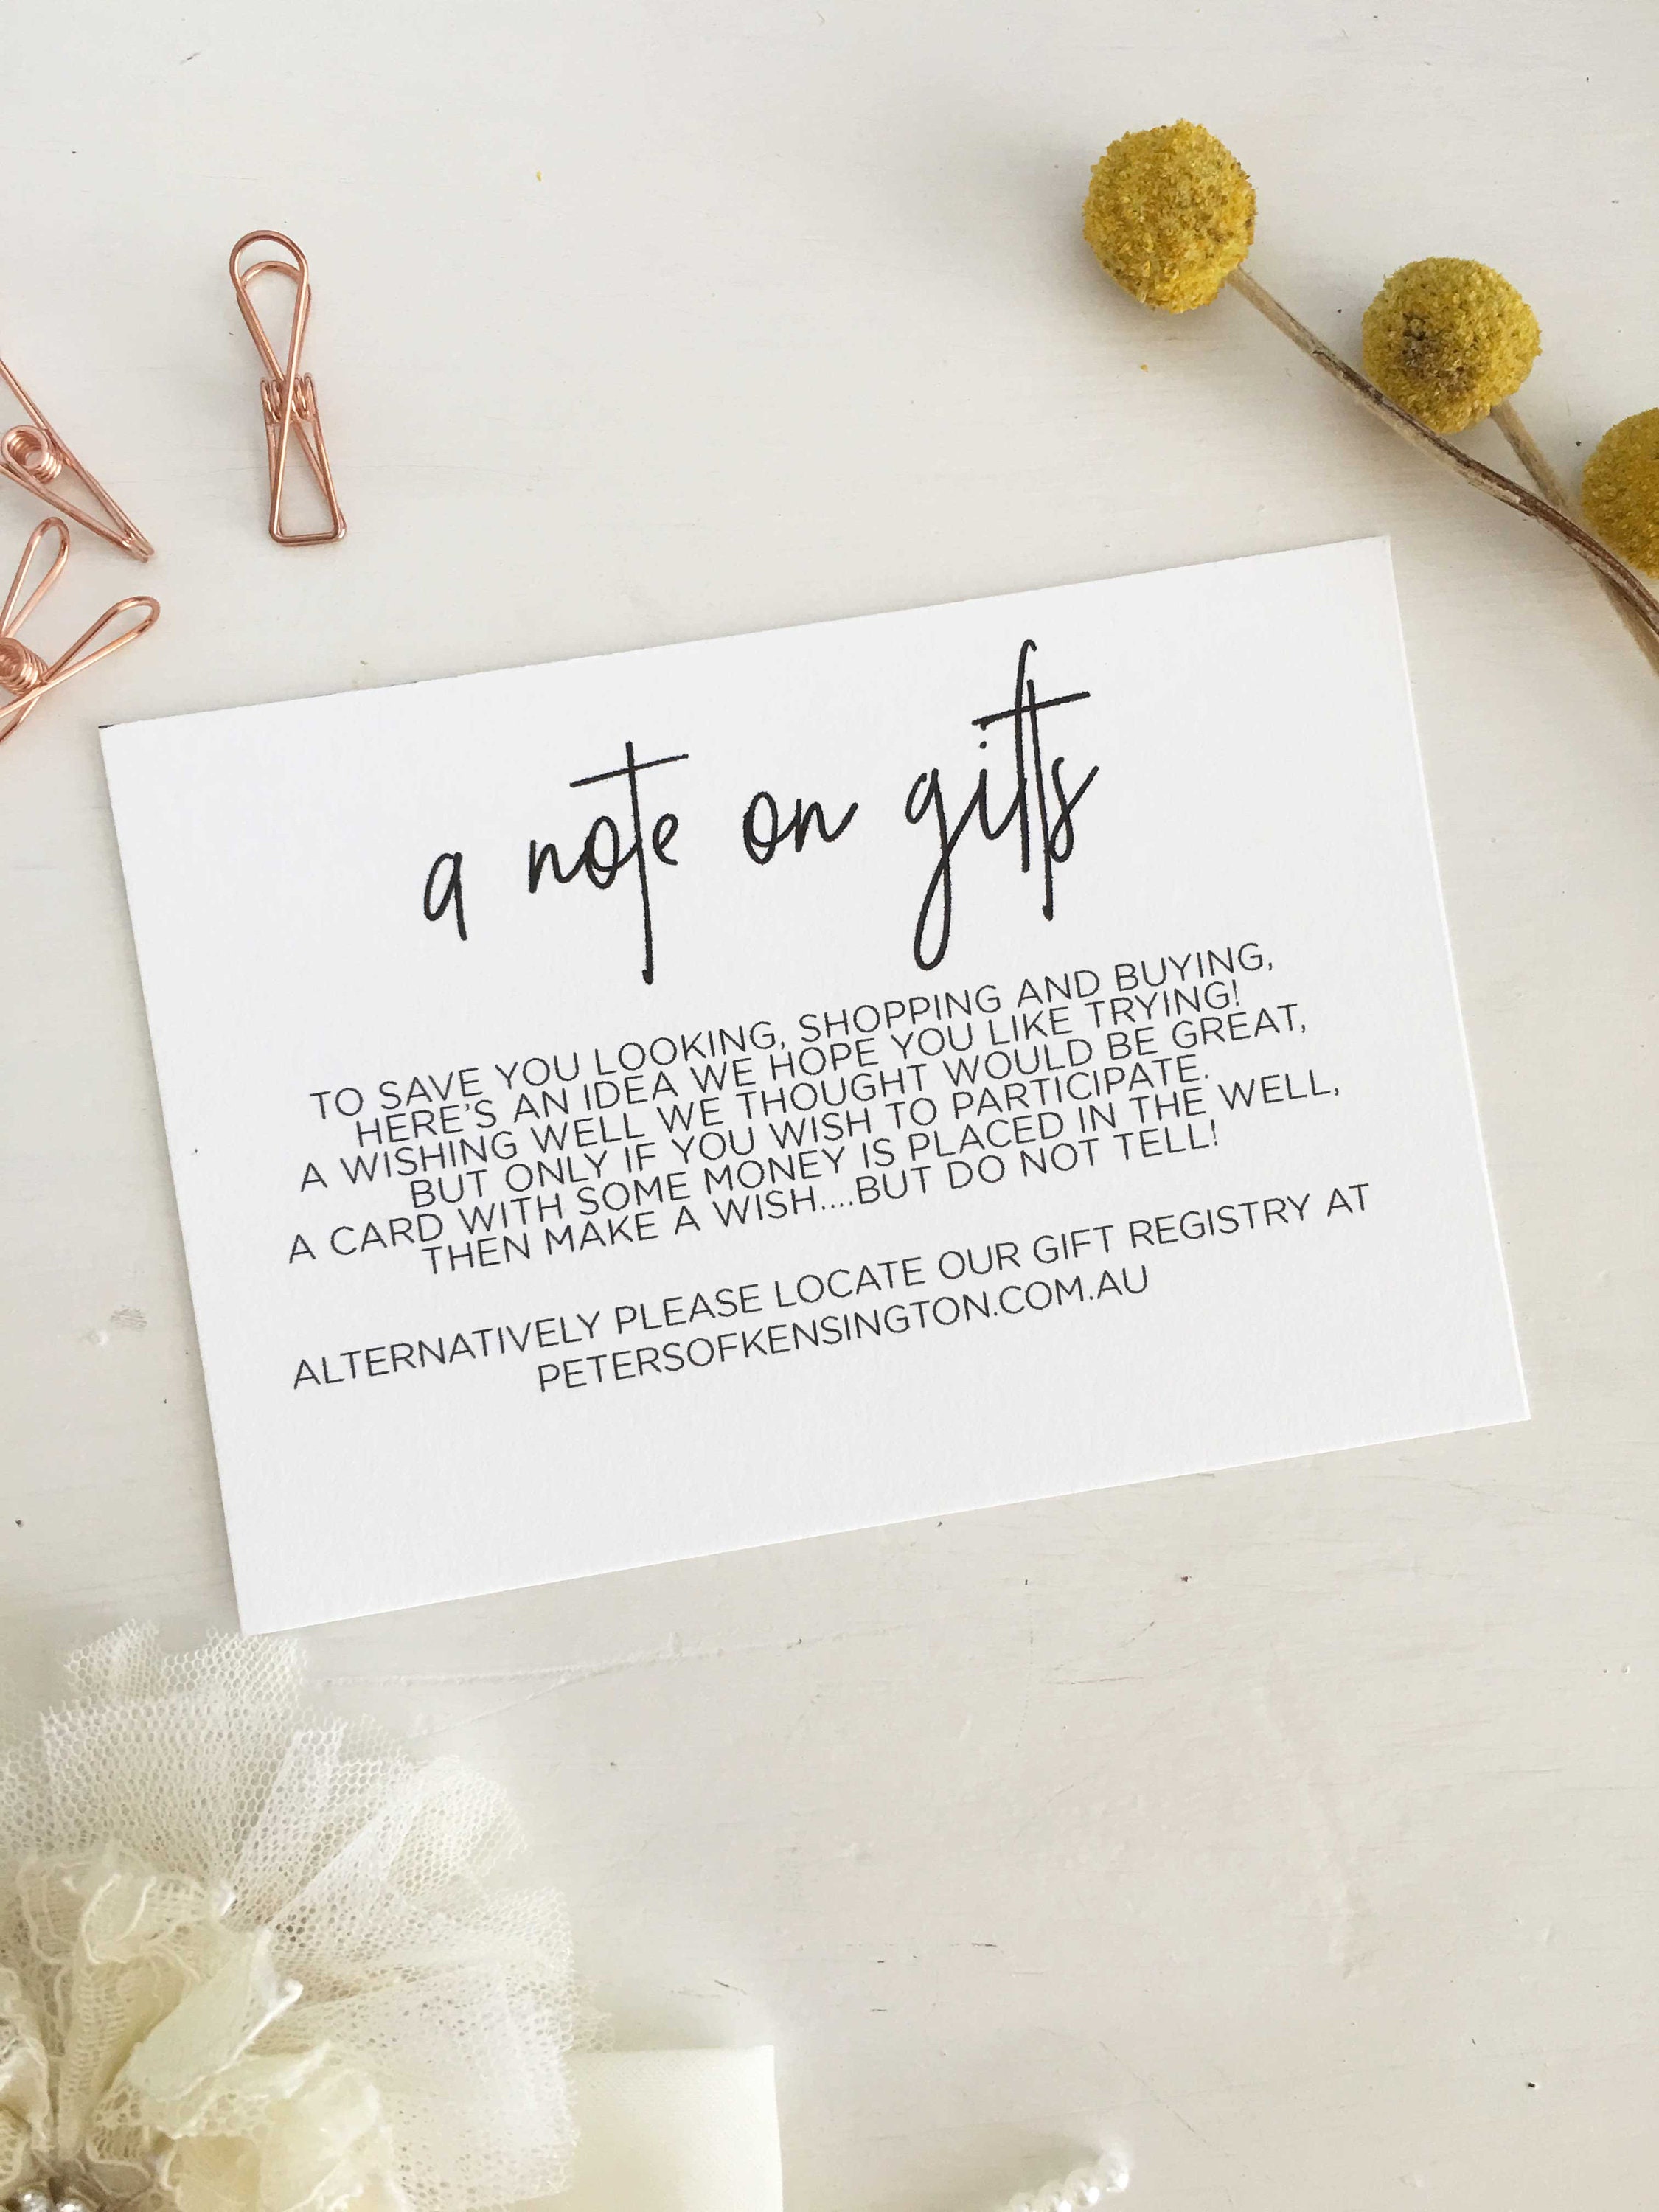 a note on gifts
TO SAVE YOU LOOKING, SHOPPING AND BUYING,
HERE'S AN IDEA WE HOPE YOU LIKE TRYING!
A WISHING WELL WE THOUGHT WOULD BE GREAT,
BUT ONLY IF YOU WISH TO PARTICIPATE.
A CARD WITH SOME MONEY IS PLACED IN THE WELL,
THEN MAKE A WISH....BUT DO NOT TELL!
ALTERNATIVELY PLEASE LOCATE OUR GIFT REGISTRY AT
PETERSOFKENSINGTON.COM.AU